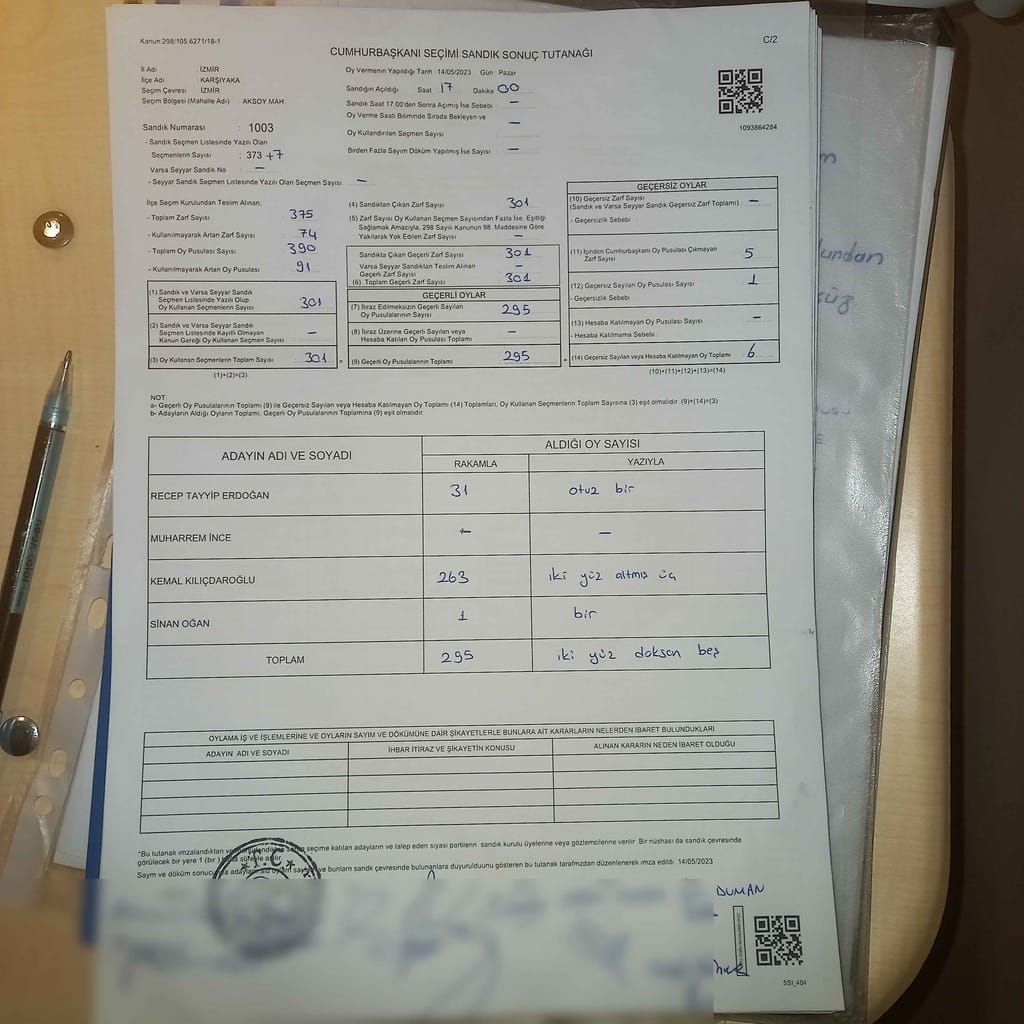 Kanun:298/105 6271/18-1
C/2
CUMHURBAŞKANI SEÇİMİ SANDIK SONUÇ TUTANAĞI
İl Adı : İZMİR
İlçe Adı : KARŞIYAKA
Seçim Çevresi : İZMİR
Seçim Bölgesi (Mahalle Adı) : AKSOY MAH.
Sandık Numarası : 1003
- Sandık Seçmen Listesinde Yazılı Olan
Seçmenlerin Sayısı : 373 +7
Varsa Seyyar Sandık No : —
- Seyyar Sandık Seçmen Listesinde Yazılı Olan Seçmen Sayısı: —
Oy Vermenin Yapıldığı Tarih 14/05/2023 Gün : Pazar
Sandığın Açıldığı Saat 17 Dakika 00
Sandık Saat 17.00'den Sonra Açımış İse Sebebi —
Oy Verme Saati Bitiminde Sırada Bekleyen ve
Oy Kullandırılan Seçmen Sayısı —
Birden Fazla Sayım Döküm Yapılmış İse Sayısı —
1093864284
İlçe Seçim Kurulundan Teslim Alınan;
- Toplam Zarf Sayısı 375
- Kullanılmayarak Artan Zarf Sayısı 74
- Toplam Oy Pusulası Sayısı 390
- Kullanılmayarak Artan Oy Pusulası 91
(1) Sandık ve Varsa Seyyar Sandık
Seçmen Listesinde Yazılı Olup
Oy Kullanan Seçmenlerin Sayısı 301
(2) Sandık ve Varsa Seyyar Sandık
Seçmen Listesinde Kayıtlı Olmayan
Kanun Gereği Oy Kullanan Seçmen Sayısı —
(3) Oy Kullanan Seçmenlerin Toplam Sayısı 301 =
(1)+(2)=(3)
(4) Sandıktan Çıkan Zarf Sayısı 301
(5) Zarf Sayısı Oy Kullanan Seçmen Sayısından Fazla İse, Eşitliği
Sağlamak Amacıyla, 298 Sayılı Kanunun 98. Maddesine Göre
Yakılarak Yok Edilen Zarf Sayısı —
Sandıkta Çıkan Geçerli Zarf Sayısı 301
Varsa Seyyar Sandıktan Teslim Alınan
Geçerli Zarf Sayısı —
(6) Toplam Geçerli Zarf Sayısı 301
GEÇERLİ OYLAR
(7) İtiraz Edilmeksizin Geçerli Sayılan
Oy Pusulalarının Sayısı 295
(8) İtiraz Üzerine Geçerli Sayılan veya
Hesaba Katılan Oy Pusulası Toplamı —
(9) Geçerli Oy Pusulalarının Toplamı 295 +
GEÇERSİZ OYLAR
(10) Geçersiz Zarf Sayısı
(Sandık ve Varsa Seyyar Sandık Geçersiz Zarf Toplamı) —
- Geçersizlik Sebebi :
(11) İçinden Cumhurbaşkanı Oy Pusulası Çıkmayan
Zarf Sayısı 5
(12) Geçersiz Sayılan Oy Pusulası Sayısı 1
- Geçersizlik Sebebi :
(13) Hesaba Katılmayan Oy Pusulası Sayısı —
- Hesaba Katılmama Sebebi :
(14) Geçersiz Sayılan veya Hesaba Katılmayan Oy Toplamı 6
(10)+(11)+(12)+(13)=(14)
NOT
a- Geçerli Oy Pusulalarının Toplamı (9) ile Geçersiz Sayılan veya Hesaba Katılmayan Oy Toplamı (14) Toplamları, Oy Kullanan Seçmenlerin Toplam Sayısına (3) eşit olmalıdır. (9)+(14)=(3)
b- Adayların Aldığı Oyların Toplamı, Geçerli Oy Pusulalarının Toplamına (9) eşit olmalıdır
ADAYIN ADI VE SOYADI
ALDIĞI OY SAYISI
RAKAMLA YAZIYLA
RECEP TAYYİP ERDOĞAN 31 otuz bir
MUHARREM İNCE — —
KEMAL KILIÇDAROĞLU 263 iki yüz altmış üç
SİNAN OĞAN 1 bir
TOPLAM 295 iki yüz doksan beş
OYLAMA İŞ VE İŞLEMLERİNE VE OYLARIN SAYIM VE DÖKÜMÜNE DAİR ŞİKAYETLERLE BUNLARA AİT KARARLARIN NELERDEN İBARET BULUNDUKLARI
ADAYIN ADI VE SOYADI İHBAR İTİRAZ VE ŞİKAYETİN KONUSU ALINAN KARARIN NEDEN İBARET OLDUĞU
"Bu tutanak imzalandıktan seçime katılan ve talep eden siyasi partilerin sandık kurulu üyelerine veya gözlemcilerine verilir. Bir nüshası da sandık çevresinde
görülecek bir yere 1 (bir) süreyle asılır.
Sayım ve döküm ve bunların sandık çevresinde bulunanlara duyurulduğunu gösteren bu tutanak tarafımızdan düzenlenerek imza edildi. 14/05/2023
T.C.
DUMAN
551_404
undan